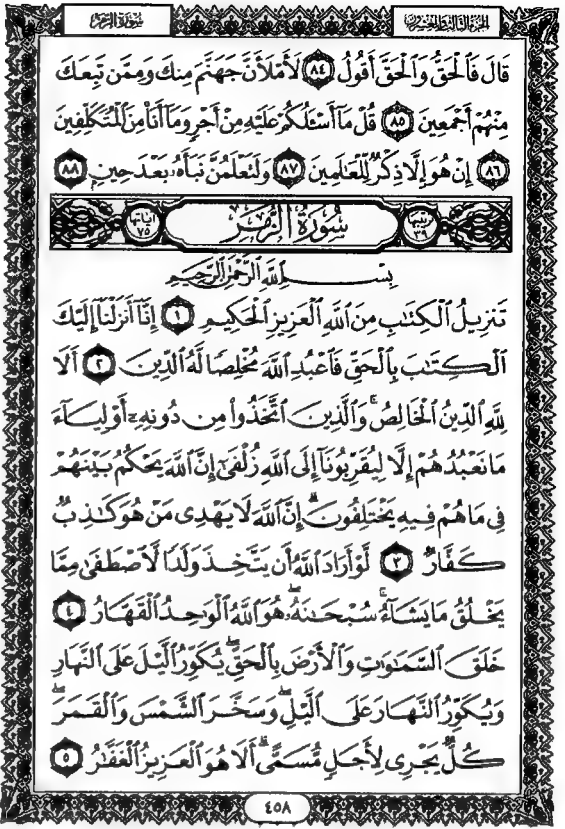 سورة الزمر
الجزء الثالث والعشرين
قَالَ فَٱلْحَقُّ وَٱلْحَقَّ أَقُولُ ٨٤ لَأَمْلَأَنَّ جَهَنَّمَ مِنكَ وَمِمَّن تَبِعَكَ
مِنْهُمْ أَجْمَعِينَ ٨٥ قُلْ مَآ أَسْـَٔلُكُمْ عَلَيْهِ مِنْ أَجْرٍ وَمَآ أَنَا۠ مِنَ ٱلْمُتَكَلِّفِينَ
٨٦ إِنْ هُوَ إِلَّا ذِكْرٌ لِّلْعَٰلَمِينَ ٨٧ وَلَتَعْلَمُنَّ نَبَأَهُۥ بَعْدَ حِينٍۭ ٨٨
ترتيبها ٣٩ سُورَةُ الزُّمَرِ آياتها ٧٥
بِسْمِ ٱللَّهِ ٱلرَّحْمَٰنِ ٱلرَّحِيمِ
تَنزِيلُ ٱلْكِتَٰبِ مِنَ ٱللَّهِ ٱلْعَزِيزِ ٱلْحَكِيمِ ١ إِنَّآ أَنزَلْنَآ إِلَيْكَ
ٱلْكِتَٰبَ بِٱلْحَقِّ فَٱعْبُدِ ٱللَّهَ مُخْلِصًا لَّهُ ٱلدِّينَ ٢ أَلَا
لِلَّهِ ٱلدِّينُ ٱلْخَالِصُ ۚ وَٱلَّذِينَ ٱتَّخَذُوا۟ مِن دُونِهِۦٓ أَوْلِيَآءَ
مَا نَعْبُدُهُمْ إِلَّا لِيُقَرِّبُونَآ إِلَى ٱللَّهِ زُلْفَىٰٓ إِنَّ ٱللَّهَ يَحْكُمُ بَيْنَهُمْ
فِى مَا هُمْ فِيهِ يَخْتَلِفُونَ ۗ إِنَّ ٱللَّهَ لَا يَهْدِى مَنْ هُوَ كَٰذِبٌ
كَفَّارٌ ٣ لَّوْ أَرَادَ ٱللَّهُ أَن يَتَّخِذَ وَلَدًا لَّٱصْطَفَىٰ مِمَّا
يَخْلُقُ مَا يَشَآءُ ۚ سُبْحَٰنَهُۥ ۖ هُوَ ٱللَّهُ ٱلْوَٰحِدُ ٱلْقَهَّارُ ٤
خَلَقَ ٱلسَّمَٰوَٰتِ وَٱلْأَرْضَ بِٱلْحَقِّ ۖ يُكَوِّرُ ٱلَّيْلَ عَلَى ٱلنَّهَارِ
وَيُكَوِّرُ ٱلنَّهَارَ عَلَى ٱلَّيْلِ ۖ وَسَخَّرَ ٱلشَّمْسَ وَٱلْقَمَرَ ۖ
كُلٌّ يَجْرِى لِأَجَلٍ مُّسَمًّى ۗ أَلَا هُوَ ٱلْعَزِيزُ ٱلْغَفَّٰرُ ٥
٤٥٨